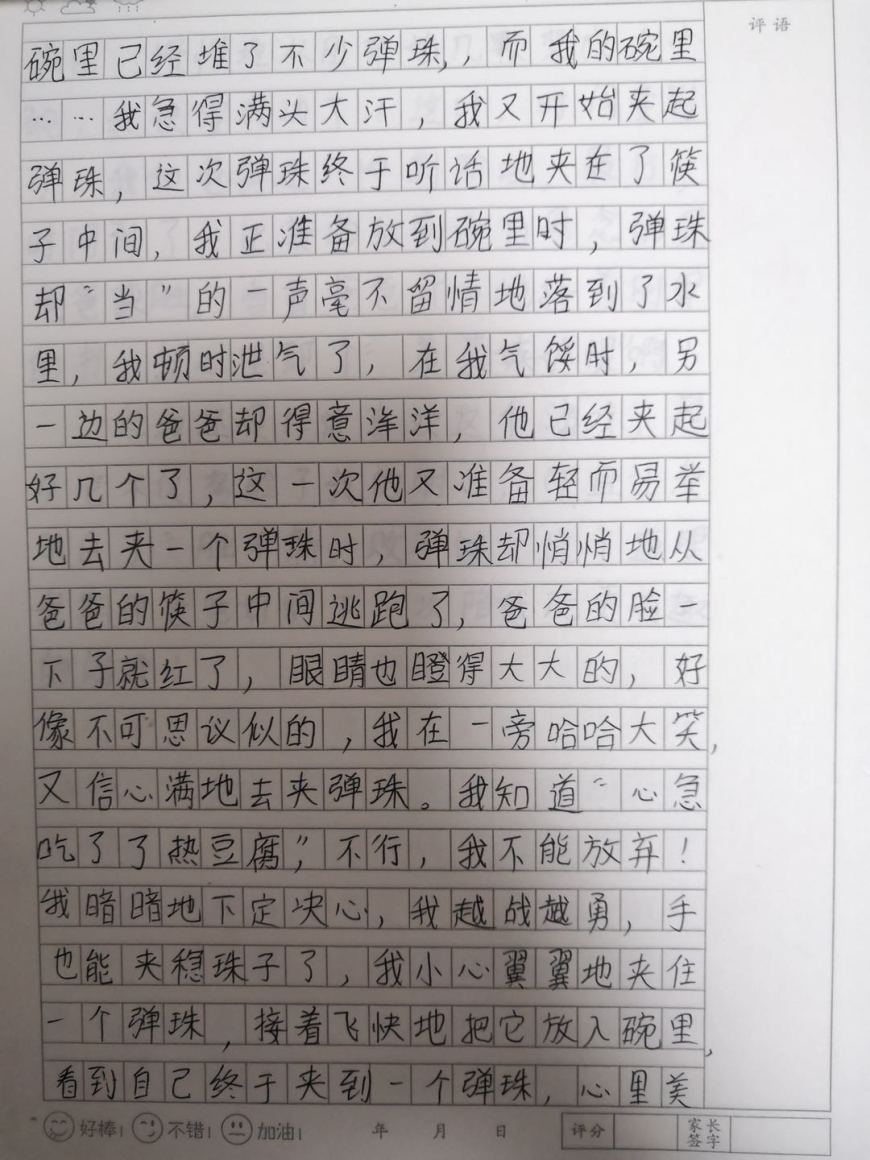 评语
碗里已经堆了不少弹珠,，而我的碗里
……我急得满头大汗，我又开始夹起
弹珠，这次弹珠终于听话地夹在了筷
子中间，我正准备放到碗里时，弹珠
却“当”的一声毫不留情地落到了水
里，我顿时泄气了，在我气馁时，另
一边的爸爸却得意洋洋，他已经夹起
好几个了，这一次他又准备轻而易举
地去夹一个弹珠时，弹珠却悄悄地从
爸爸的筷子中间逃跑了，爸爸的脸一
下子就红了，眼睛也瞪得大大的，好
像不可思议似的，我在一旁哈哈大笑，
又信心满地去夹弹珠。我知道“心急
吃了了热豆腐”，不行，我不能放弃！
我暗暗地下定决心，我越战越勇，手
也能夹稳珠子了，我小心翼翼地夹住
一个弹珠，接着飞快地把它放入碗里，
看到自己终于夹到一个弹珠，心里美
好棒! 不错! 加油! 年 月 日 评分 家长签字